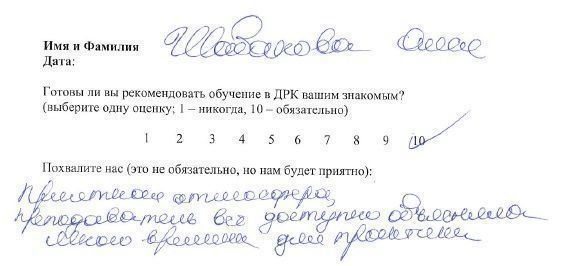 Имя и Фамилия Шабанова Анна
Дата:
Готовы ли вы рекомендовать обучение в ДРК вашим знакомым?
(выберите одну оценку; 1 – никогда, 10 – обязательно)
1 2 3 4 5 6 7 8 9 10
Похвалите нас (это не обязательно, но нам будет приятно):
Приятная атмосфера,
преподаватель всё доступно объяснила
много времени для практики